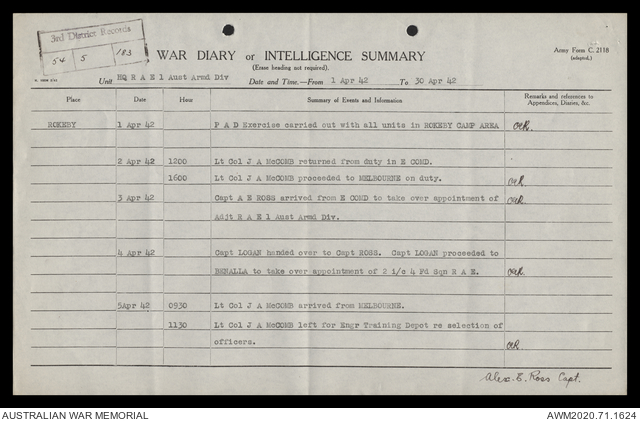 3rd District Records
54 5 183
WAR DIARY or INTELLIGENCE SUMMARY
(Erase heading not required).
Army Form C. 2118
(adapted.)
Unit HQ R A E 1 Aust Armd Div Date and Time.—From 1 Apr 42 To 30 Apr 42
Place Date Hour Summary of Events and Information Remarks and references to
Appendices, Diaries, &c.
ROKEBY 1 Apr 42 P A D Exercise carried out with all units in ROKEBY CAMP AREA
2 Apr 42 1200 Lt Col J A McCOMB returned from duty in E COMD.
1600 Lt Col J A McCOMB proceeded to MELBOURNE on duty.
3 Apr 42 Capt A E ROSS arrived from E COMD to take over appointment of
Adjt R A E 1 Aust Armd Div.
4 Apr 42 Capt LOGAN handed over to Capt ROSS. Capt LOGAN proceeded to
BENALLA to take over appointment of 2 i/c 4 Fd Sqn R A E.
5Apr 42 0930 Lt Col J A McCOMB arrived from MELBOURNE.
1130 Lt Col J A McCOMB left for Engr Training Depot re selection of
officers.
Alex. E. Ross Capt.
AUSTRALIAN WAR MEMORIAL AWM2020.71.1624